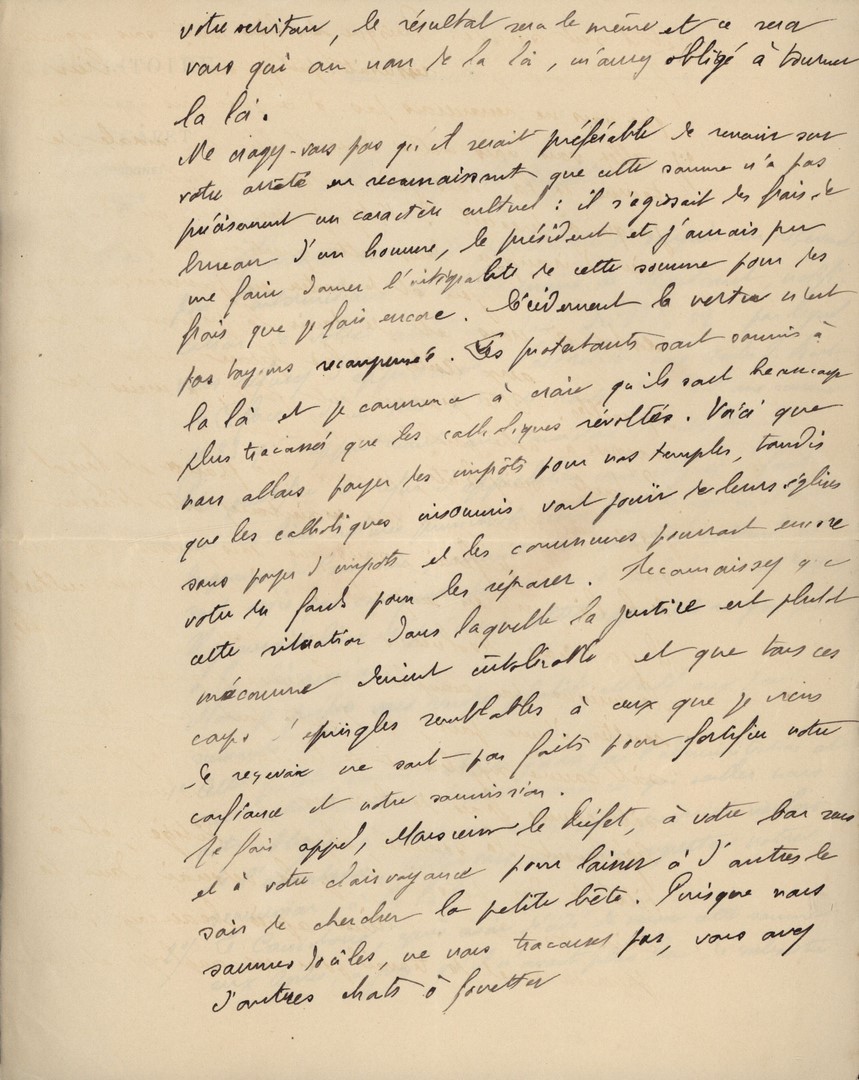 votre serviteur, le résultat sera le même et ce sera
vous qui au nom de la loi, m'aurez obligé à tourner
la loi.
Ne croyez-vous pas qu'il serait préférable de revenir sur
votre arrêté en reconnaissant que cette somme n'a pas
précisément un caractère cultuel : il s'agissait des frais de
bureau d'un homme, le président et j'aurais pu
me faire donner l'intégralité de cette somme pour des
frais que je fais encore. Décidément la vertu n'est
pas toujours récompensée. Les protestants sont soumis à
la loi et je commence à croire qu'ils sont beaucoup
plus tracassés que les catholiques révoltés. Voici que
nous allons payer des impôts pour nos temples, tandis
que les catholiques insoumis vont jouir de leurs églises
sans payer d'impôts et les communes pourront encore
voter des fonds pour les réparer. Reconnaissez que
cette situation dans laquelle la justice est plutôt
méconnue devient intolérable et que tous ces
coups d'épingles semblables à ceux que je viens
de recevoir ne sont pas faits pour fortifier notre
confiance et notre soumission.
Je fais appel, Monsieur le Préfet, à votre bon sens
et à votre clairvoyance pour laisser à d'autres le
soin de chercher la petite bête. Puisque nous
sommes dociles, ne nous tracassez pas, vous avez
d'autres chats à fouetter